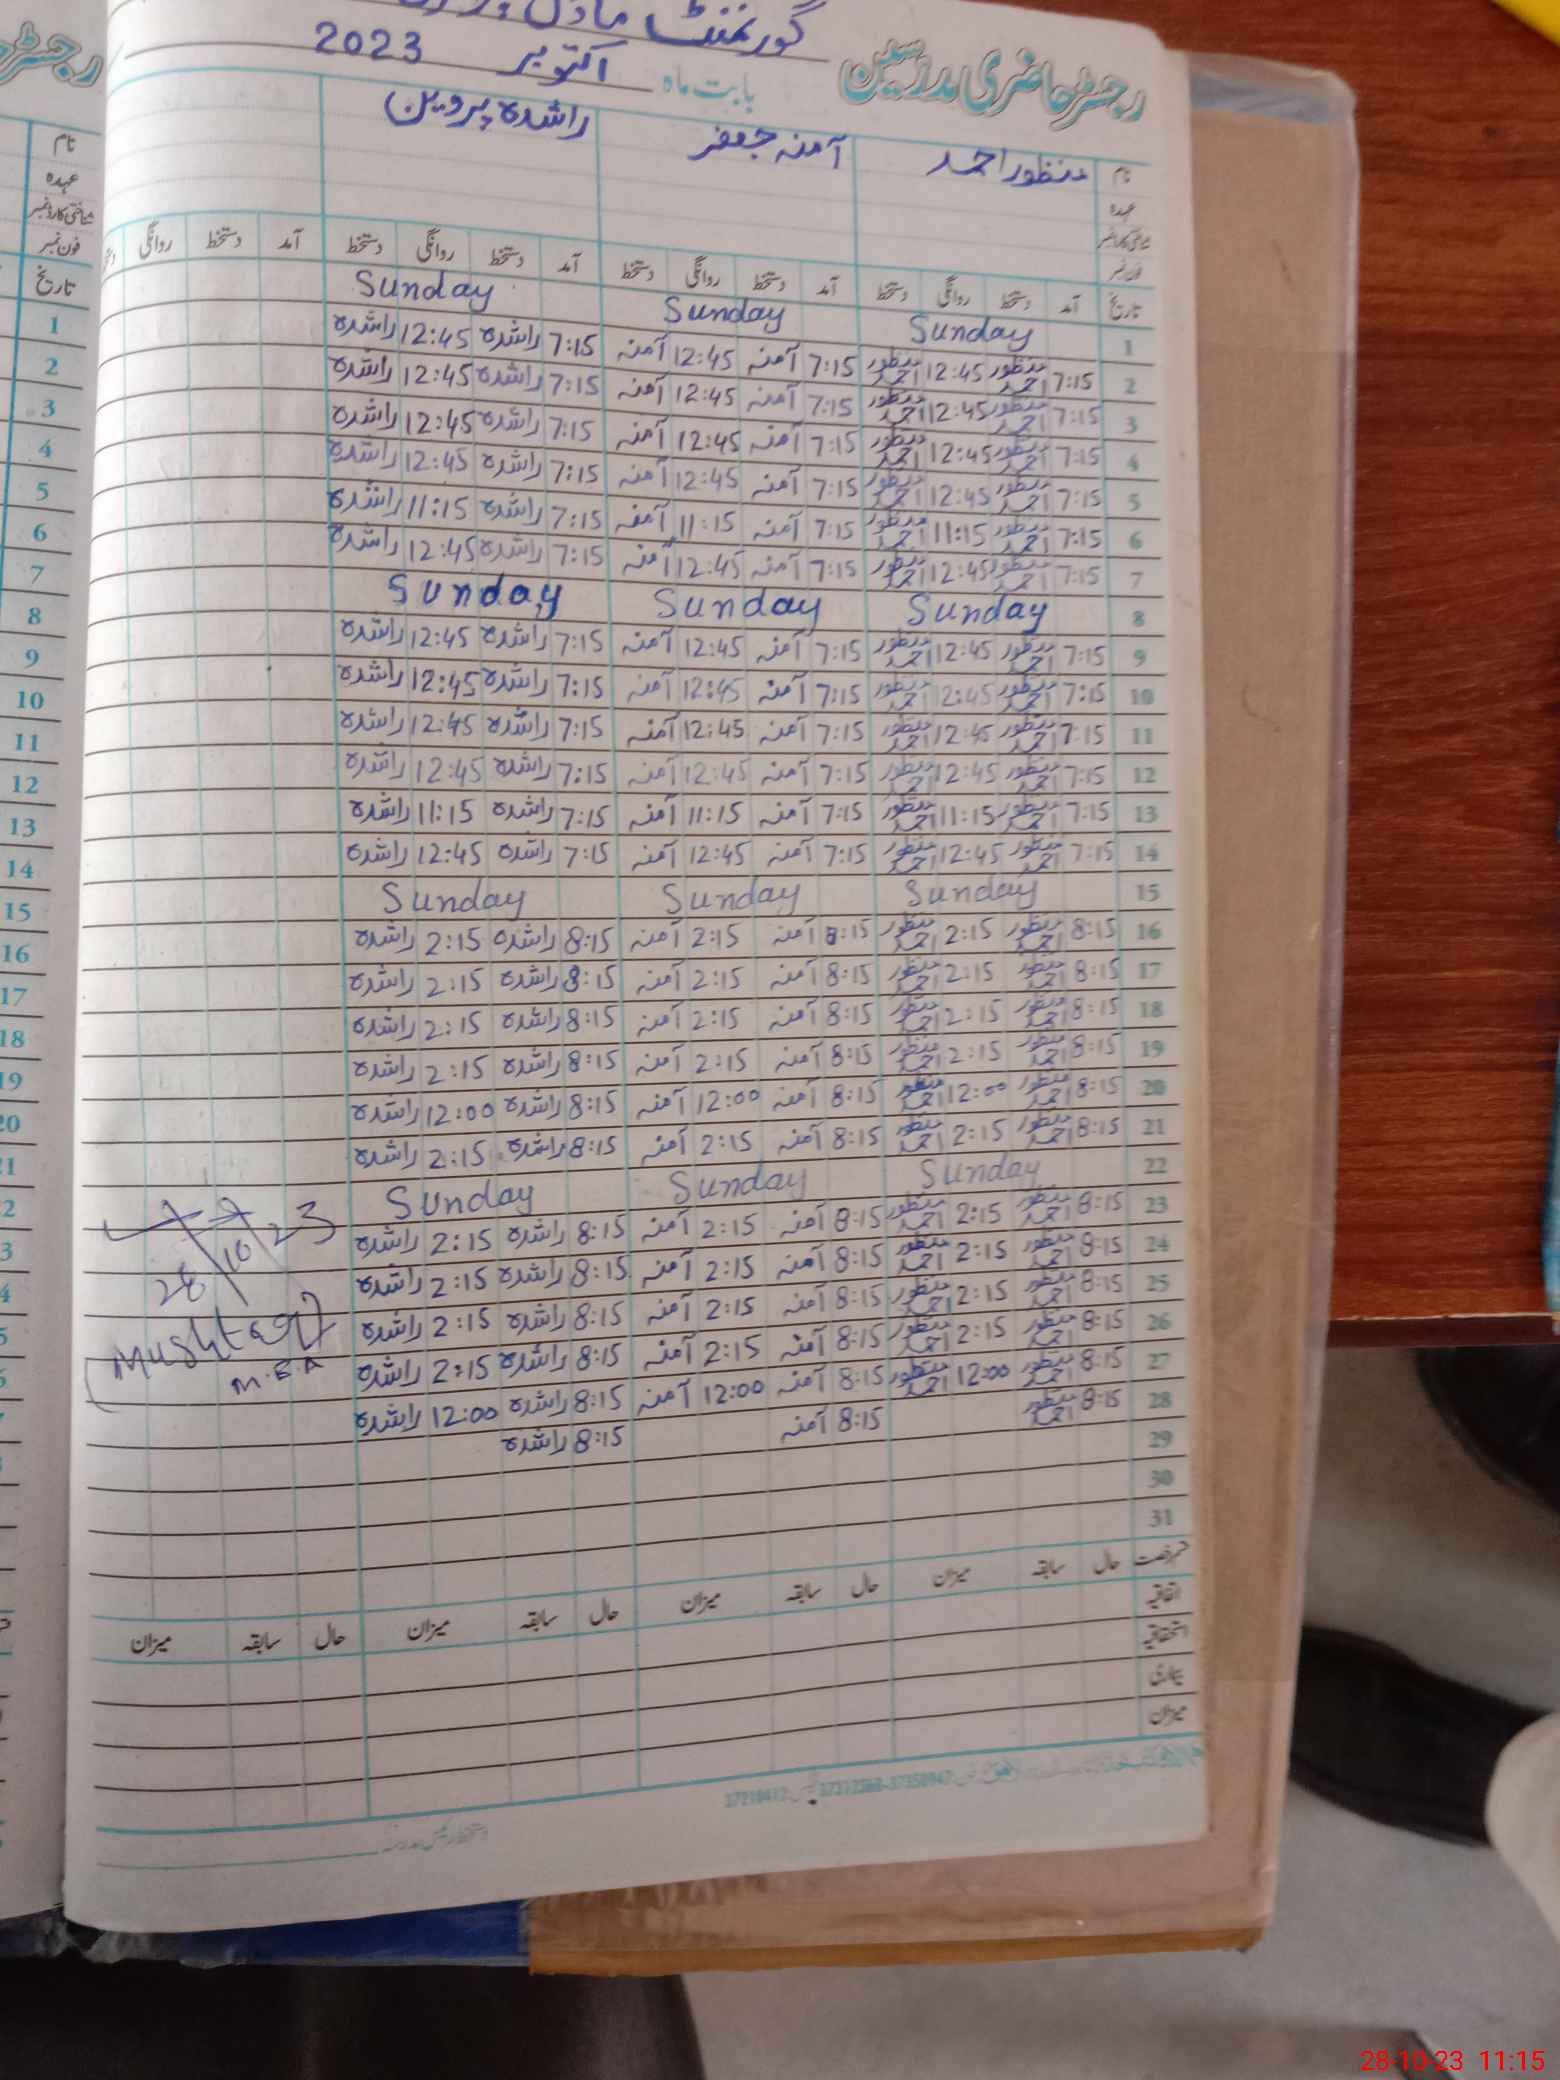 رجسٹر حاضری مدرسین
گورنمنٹ ماڈل
بابت ماہ اکتوبر 2023
نام منظور احمد آمنہ جعفر راشدہ پروین
عہدہ
شناختی کارڈ نمبر
فون نمبر
تاریخ آمد دستخط روانگی دستخط آمد دستخط روانگی دستخط آمد دستخط روانگی دستخط آمد دستخط روانگی
1 Sunday Sunday Sunday
2 7:15 منظور احمد 12:45 منظور احمد 7:15 آمنہ 12:45 آمنہ 7:15 راشدہ 12:45 راشدہ
3 7:15 منظور احمد 12:45 منظور احمد 7:15 آمنہ 12:45 آمنہ 7:15 راشدہ 12:45 راشدہ
4 7:15 منظور احمد 12:45 منظور احمد 7:15 آمنہ 12:45 آمنہ 7:15 راشدہ 12:45 راشدہ
5 7:15 منظور احمد 12:45 منظور احمد 7:15 آمنہ 12:45 آمنہ 7:15 راشدہ 12:45 راشدہ
6 7:15 منظور احمد 11:15 منظور احمد 7:15 آمنہ 11:15 آمنہ 7:15 راشدہ 11:15 راشدہ
7 7:15 منظور احمد 12:45 منظور احمد 7:15 آمنہ 12:45 آمنہ 7:15 راشدہ 12:45 راشدہ
8 Sunday Sunday Sunday
9 7:15 منظور احمد 12:45 منظور احمد 7:15 آمنہ 12:45 آمنہ 7:15 راشدہ 12:45 راشدہ
10 7:15 منظور احمد 12:45 منظور احمد 7:15 آمنہ 12:45 آمنہ 7:15 راشدہ 12:45 راشدہ
11 7:15 منظور احمد 12:45 منظور احمد 7:15 آمنہ 12:45 آمنہ 7:15 راشدہ 12:45 راشدہ
12 7:15 منظور احمد 12:45 منظور احمد 7:15 آمنہ 12:45 آمنہ 7:15 راشدہ 12:45 راشدہ
13 7:15 منظور احمد 11:15 منظور احمد 7:15 آمنہ 11:15 آمنہ 7:15 راشدہ 11:15 راشدہ
14 7:15 منظور احمد 12:45 منظور احمد 7:15 آمنہ 12:45 آمنہ 7:15 راشدہ 12:45 راشدہ
15 Sunday Sunday Sunday
16 8:15 منظور احمد 2:15 منظور احمد 8:15 آمنہ 2:15 آمنہ 8:15 راشدہ 2:15 راشدہ
17 8:15 منظور احمد 2:15 منظور احمد 8:15 آمنہ 2:15 آمنہ 8:15 راشدہ 2:15 راشدہ
18 8:15 منظور احمد 2:15 منظور احمد 8:15 آمنہ 2:15 آمنہ 8:15 راشدہ 2:15 راشدہ
19 8:15 منظور احمد 2:15 منظور احمد 8:15 آمنہ 2:15 آمنہ 8:15 راشدہ 2:15 راشدہ
20 8:15 منظور احمد 12:00 منظور احمد 8:15 آمنہ 12:00 آمنہ 8:15 راشدہ 12:00 راشدہ
21 8:15 منظور احمد 2:15 منظور احمد 8:15 آمنہ 2:15 آمنہ 8:15 راشدہ 2:15 راشدہ
22 Sunday Sunday Sunday
23 8:15 منظور احمد 2:15 منظور احمد 8:15 آمنہ 2:15 آمنہ 8:15 راشدہ 2:15 راشدہ
24 8:15 منظور احمد 2:15 منظور احمد 8:15 آمنہ 2:15 آمنہ 8:15 راشدہ 2:15 راشدہ
25 8:15 منظور احمد 2:15 منظور احمد 8:15 آمنہ 2:15 آمنہ 8:15 راشدہ 2:15 راشدہ
26 8:15 منظور احمد 2:15 منظور احمد 8:15 آمنہ 2:15 آمنہ 8:15 راشدہ 2:15 راشدہ
27 8:15 منظور احمد 12:00 منظور احمد 8:15 آمنہ 12:00 آمنہ 8:15 راشدہ 12:00 راشدہ
28 8:15 منظور احمد 8:15 آمنہ 8:15 راشدہ
29
30
31
28/10/23
Mushtaq
M.E.A
قسم رخصت حال سابقہ میزان حال سابقہ میزان حال سابقہ میزان حال سابقہ میزان
اتفاقیہ
استحقاقیہ
بیماری
میزان
رجسٹر
نام
عہدہ
شناختی کارڈ نمبر
فون نمبر
تاریخ
1
2
3
4
5
6
7
8
9
10
11
12
13
14
15
16
17
18
19
20
28-10-23 11:15